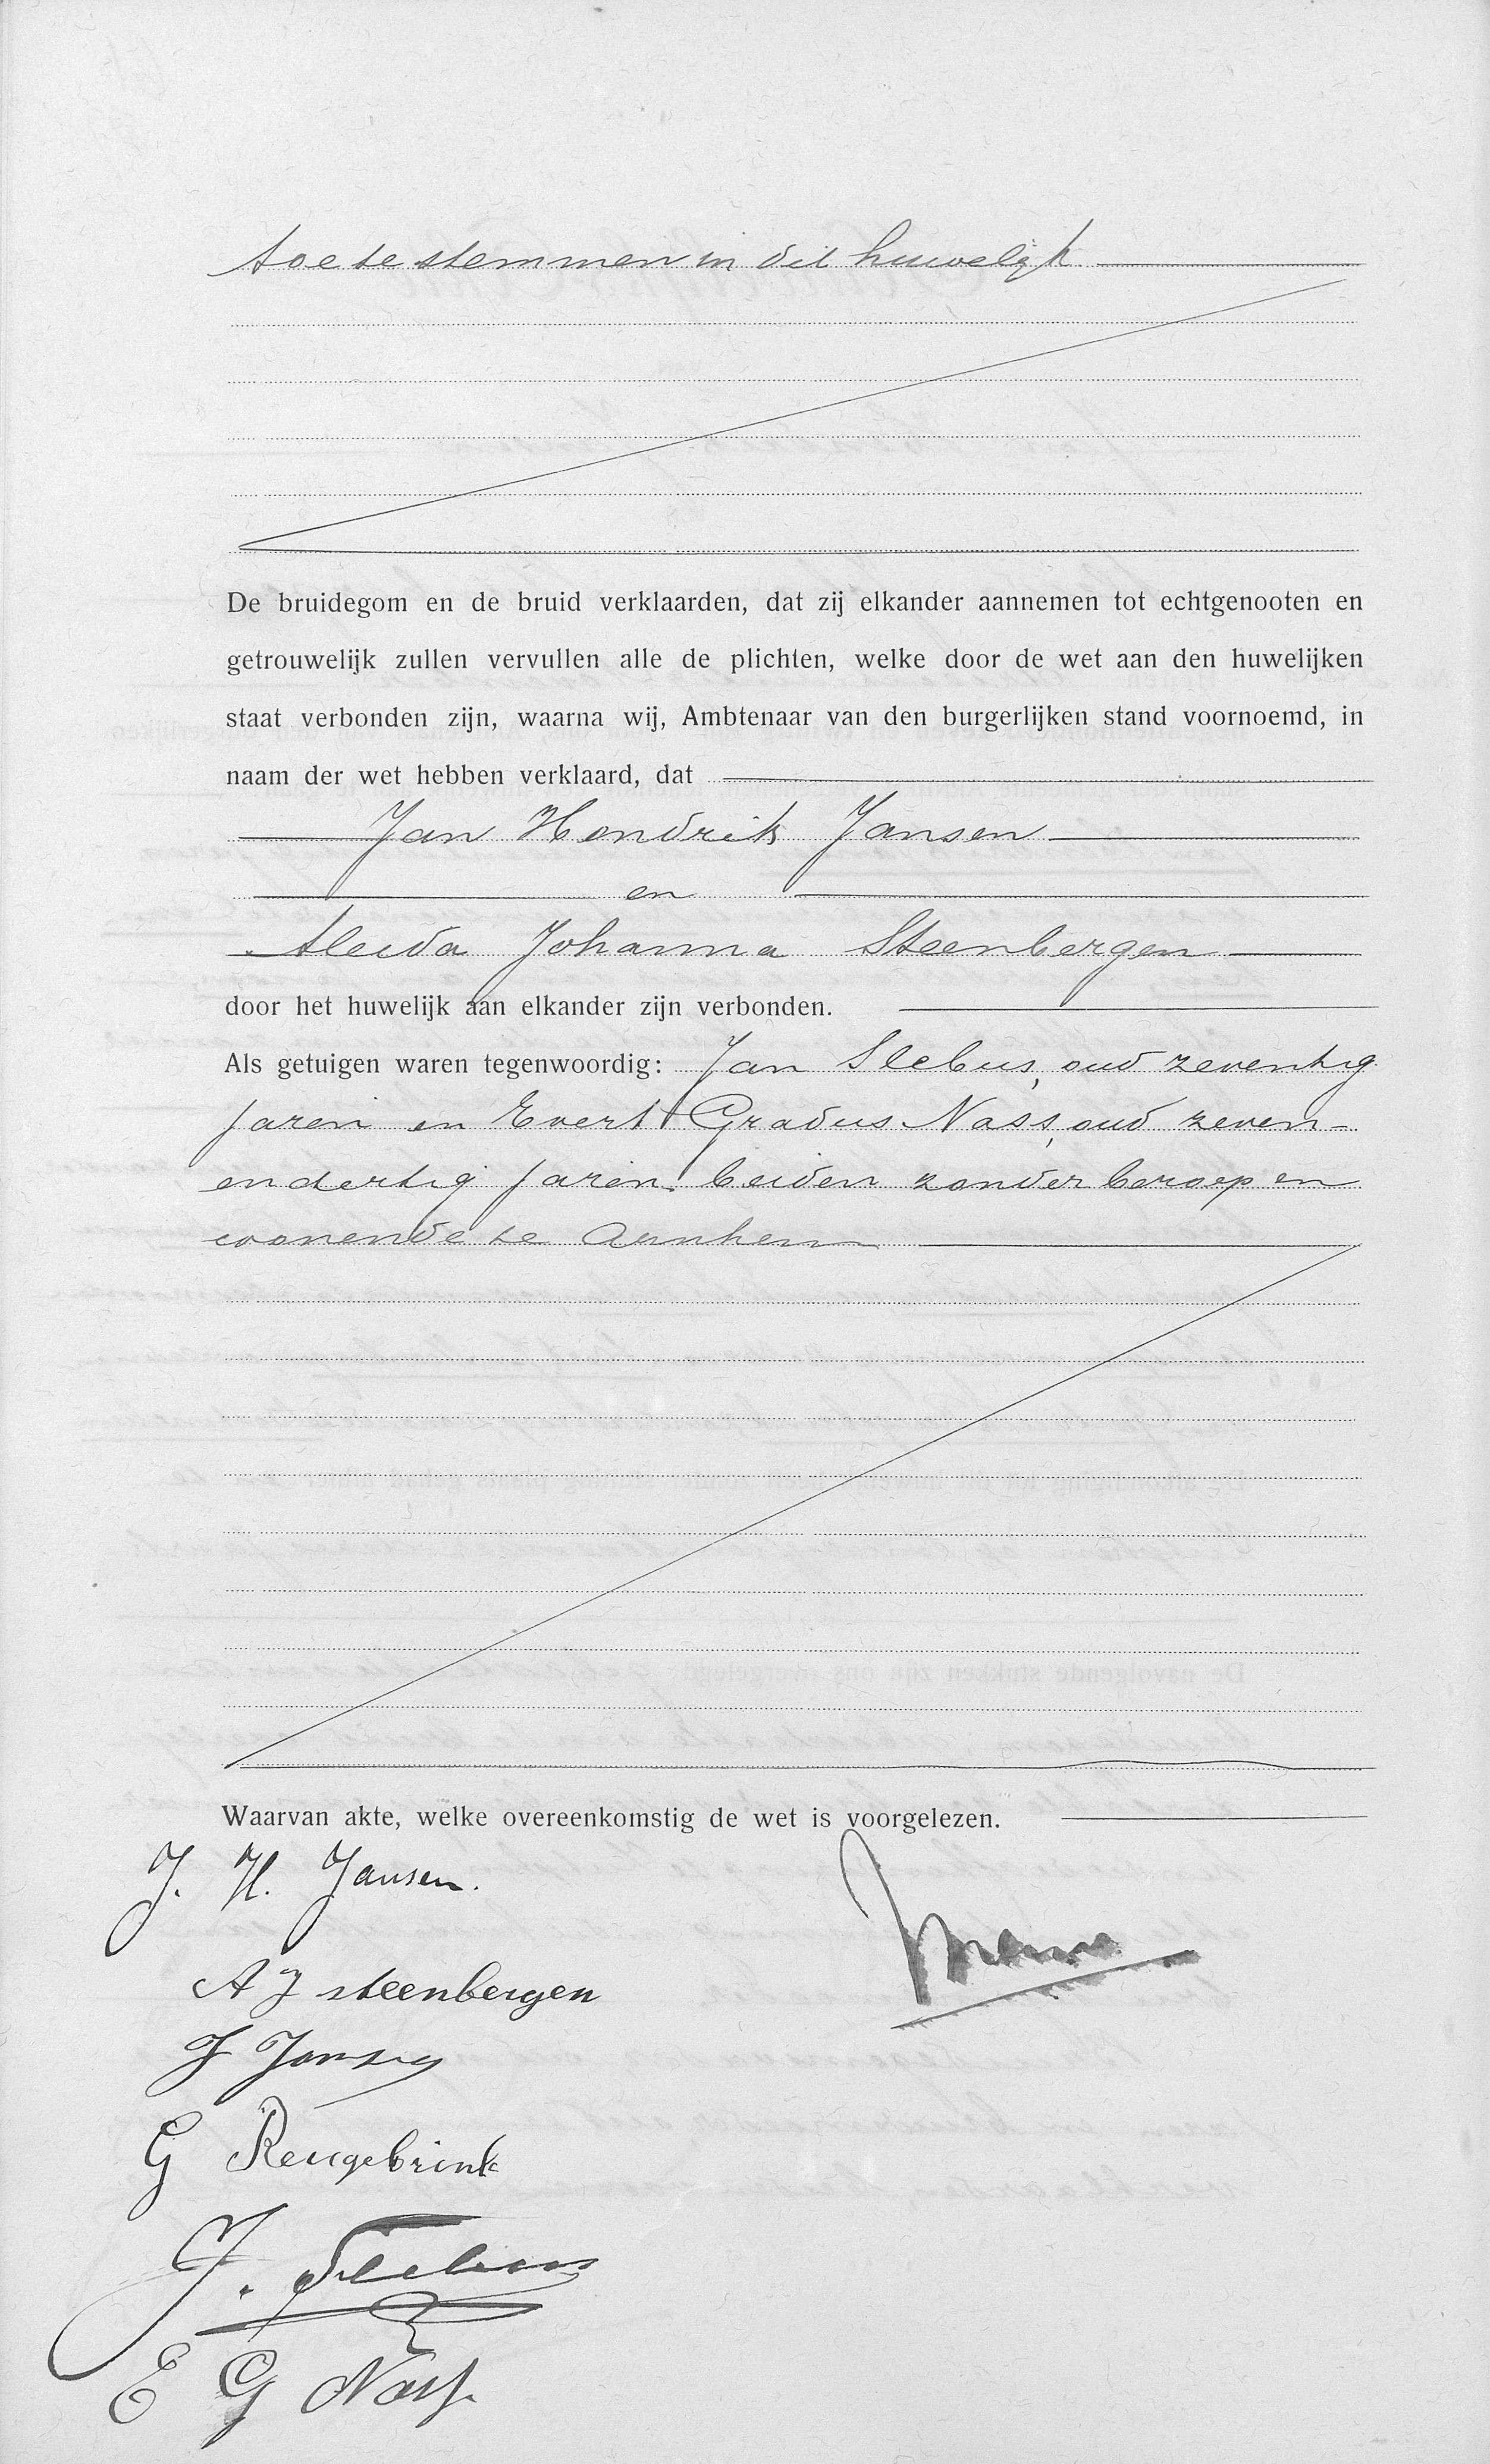 toe te stemmen in dit huwelijk
De bruidegom en de bruid verklaarden, dat zij elkander aannemen tot echtgenooten en
getrouwelijk zullen vervullen alle de plichten, welke door de wet aan den huwelijken
staat verbonden zijn, waarna wij, Ambtenaar van den burgerlijken stand voornoemd, in
naam der wet hebben verklaard, dat
Jan Hendrik Jansen
en
Aleida Johanna Steenbergen
door het huwelijk aan elkander zijn verbonden.
Als getuigen waren tegenwoordig: Jan Slebus, oud zeventig
jaren en Evert Gradus Nass, oud zeven-
endertig jaren. beiden zonder beroep en
wonende te Arnhem
Waarvan akte, welke overeenkomstig de wet is voorgelezen.
J. H. Jansen.
A J steenbergen
J Jansen
G Reugebrink
J. Slebus
E G Nass.